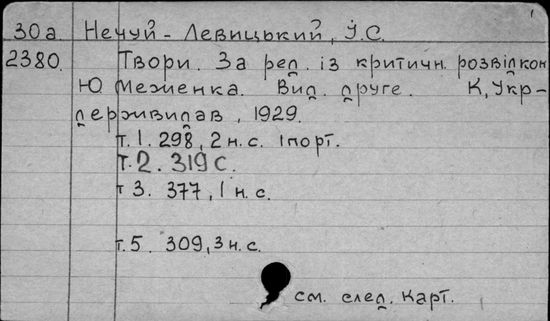 1
30а. Нечуй-Левицький, І.С.
2380. Твори. За ред. із критичн. розвідкою
Ю Меженка. Вид. друге. К, Укр-
держвидав, 1929.
т. 1. 298, 2 н. с. 1 порт.
т. 2. 319 с.
т 3. 377, 1 н. с.
т. 5. 309, 3 н. с.
см. след. карт.